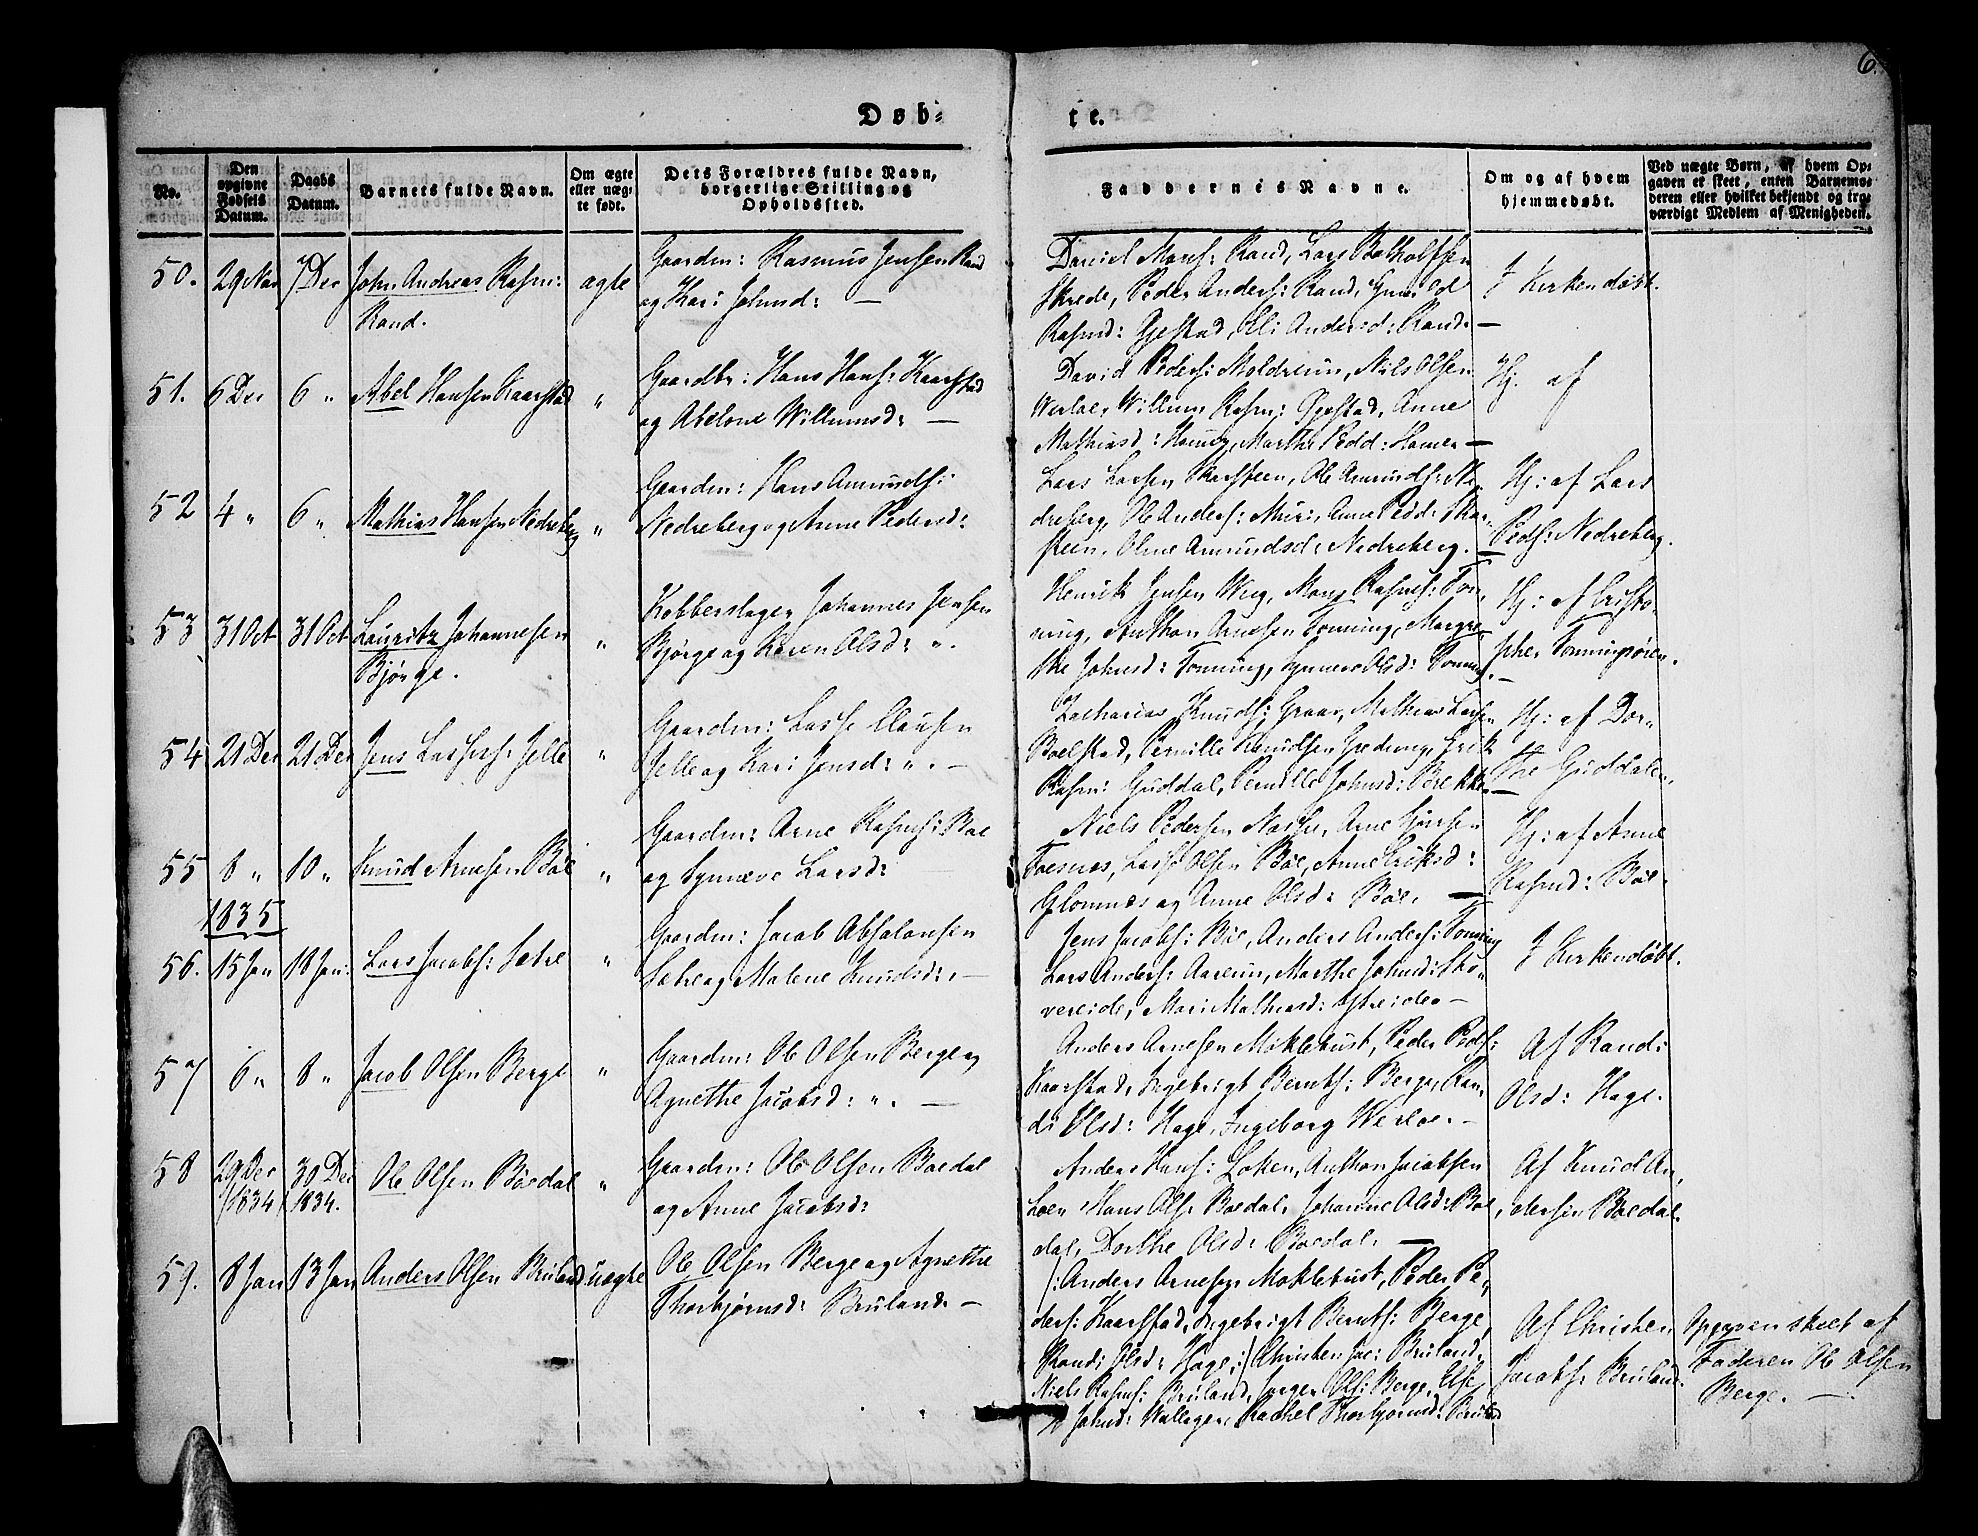 6.
Døb-
te.
No.
Den opgivne Fødsels Datum.
Daabs Datum.
Barnets fulde Navn.
Om ægte eller uægte født.
Dets Forældres fulde Navn, borgerlige Stilling og Opholdssted.
Faddernes Navne.
Om og af hvem hjemmedøbt.
Ved uægte Børn, af hvem Opgaven er skeet, enten Barnemoderen eller hvilket bekjendt og troværdigt Medlem af Menigheden.
50. 29 Nov 7 Dec John Andreas Rasm: ægte Gaardm: Rasmus Jensen Rand
Rand. og Kari Johnsd: —
Daniel Mons: Rand, Lars Botholfsen
Skrede, Peder Anders: Rand, Gunild
Rasmd: Gjestad, Eli Andersd: Rand. —
I Kirken døbt.
51. 6 Dec 6 " Abel Hansen Kaarstad " Gaardbr: Hans Hans: Kaarstad
og Abelone Willumsd: —
David Peders: Moldreim, Nils Olsen
Werloe, Willum Rasm: Gjestad, Anne
Mathiasd: Marthe Pedd: —
Hj. af
52 4 " 6 " Mathias Hansen Nedreberg " Gaardm: Hans Amunds:
Nedreberg og Anne Pedersd:
Lars Larsen Skarsteen, Ole Amunds: Ne-
dreberg, Ole Anders: Muri, Anne Pedd: Skar-
steen, Oline Amundsd: Nedreberg. —
Hj: af Lars
Peds: Nedreberg.
53 31 Oct 31 Oct Lauritz Johannesen " Kobberslager Johannes Jensen
Bjørge. Bjørge og Karen Olsd: ".
Henrik Jensen Weg, Mons Rasms: Ton-
ning, Anthon Arnesen Tonning, Margre-
the Johnsd: Tonning, Synneve Olsd: Tonning. —
Hj: af Cristo-
pher Tonningsøren.
54 21 Dec 21 Dec Jens Lasses: Jelle " Gaardm: Lasse Clausen
Jelle og Kari Jensd: ". —
Zacharias Knuds: Mathias Larsen
Boelstad, Pernille Knudsen Erik
Rasm: Guddal, Pernille Johnsd: Brekke. —
Hj: af Dor-
the Guddal.
55 8 " 10 " Knud Arnesen Bøe " Gaardm: Arne Rasms: Bøe
og Synneve Larsd:
Niels Pedersen Arne
Lasse Olsen Bøe, Anne Eriksd:
Glomnes og Anne Olsd: Bøe. —
Hj: af Anne
Rasmd: Bøe.
1835
56. 15 Jan 18 Jan: Lars Jacobs: Sætre " Gaardm: Jacob Absalonsen
Sætre og Malene Knudsd: —
Jens Jacobs: Bøe, Anders Anders: Tonning
Lars Anders: Aareim, Marthe Johnsd: Sko-
vereide, Mari Mathiasd: —
I Kirken døbt.
57 6 " 8 " Jacob Olsen Berge " Gaardm: Ole Olsen Berge og
Agnethe Jacobsd: ". —
Anders Arnesen Møklebust, Peder Peds:
Kaarstad, Ingebrigt Bernts: Berge, Ran-
di Olsd: Hage, Ingeborg Werloe. —
Af Randi
Olsd: Hage.
58 29 Dec 30 Dec Ole Olsen Bødal " Gaardm: Ole Olsen Boedal
1834 1834. og Anne Jacobsd:
Anders Hans: Loken, Anthon Jacobsen
Loen Hans Ols: Boedal, Johanne Olsd: Boe
dal, Dorthe Olsd: Boedal. —
Af Knud An-
dersen Boedal.
59. 8 Jan 13 Jan Anders Olsen Bruland uægte Ole Olsen Berge og Agnethe
Thorbjørnsd: Bruland. —
/: Anders Arnesen Møklebust, Peder Pe-
ders: Kaarstad, Ingebrigt Bernts: Berge,
Randi Olsd: Hage, :/ Christen Jac: Bruland,
Niels Rasms: Bruland, Jørgen Ols: Berge, Else
Johnsd: Rachel Thorbjørnsd: Bruland
Af Christen
Jacobs: Bruland
Opgaven skeet af
Faderen Ole Olsen
Berge. —